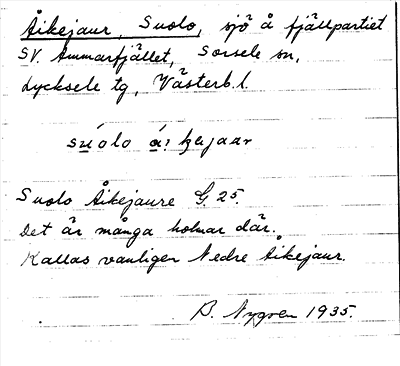 Åikejaur, Suolo, sjö å fjällpartiet
SV. Ammarfjället, Sorsele sn,
Lycksele tg, Västerb. l.
súolo á: kejaar
Suolo Åikejaure G 25.
Det är många holmar där.
Kallas vanligen Nedre Åikejaur.
B. Nygren 1935.